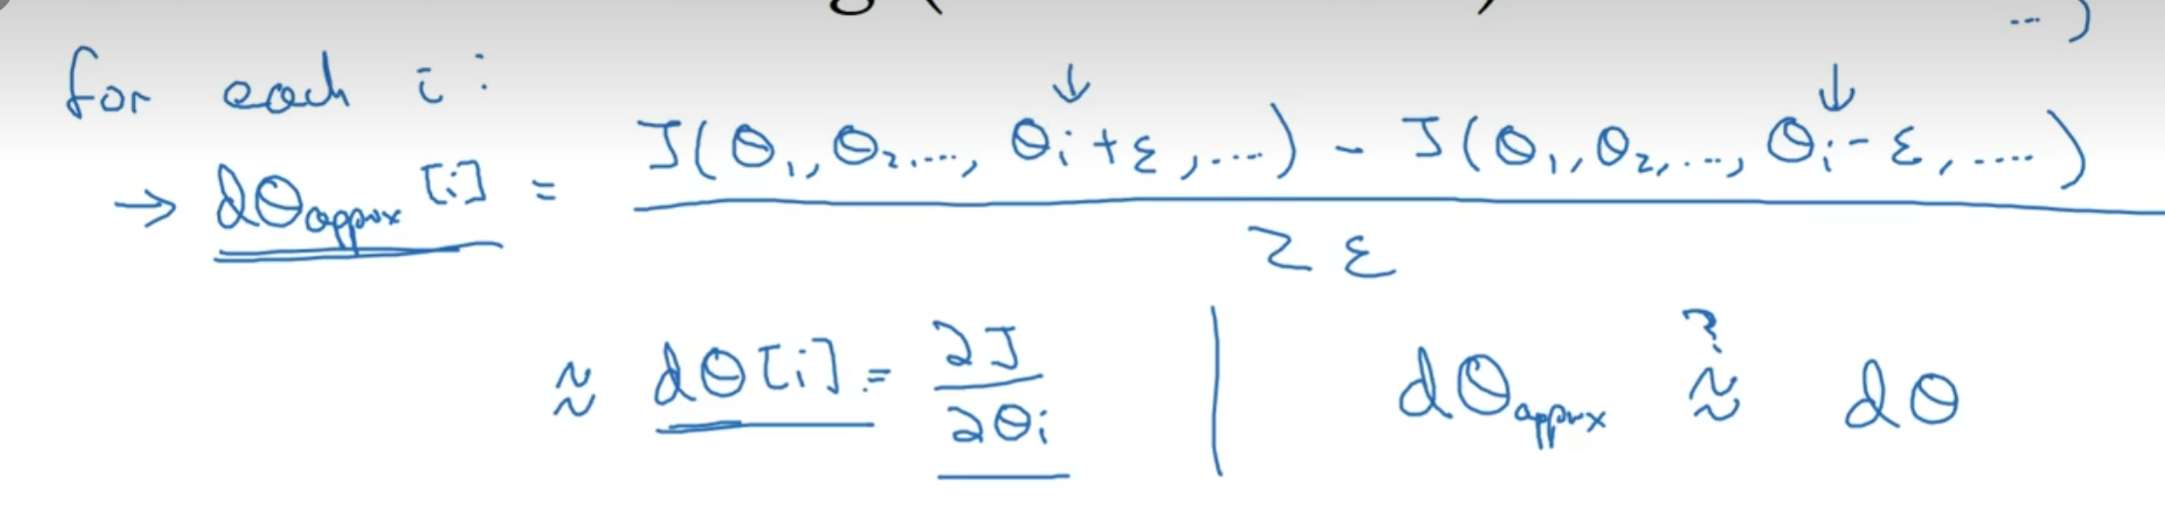 ...)
for each i :
→ dθapprox [i] = J(θ1, θ2, ..., θi + ε, ...) - J(θ1, θ2, ..., θi - ε, ...) / 2ε
≈ dθ[i] = ∂J / ∂θi | dθapprox ≈? dθ